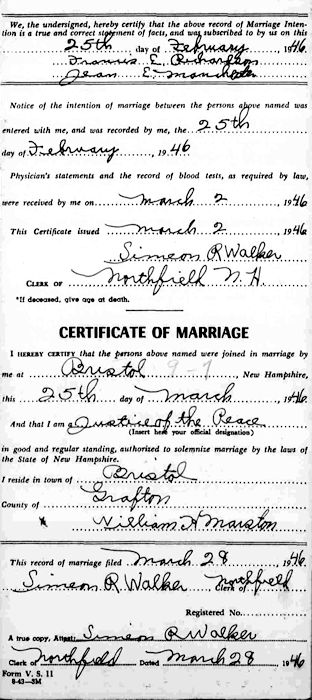 We, the undersigned, hereby certify that the above record of Marriage Inten-
tion is a true and correct statement of facts, and was subscribed to by us on this
25th day of February, 1946
Francis E. Richardson
Jean E. Manchester
Notice of the intention of marriage between the persons above named was
entered with me, and was recorded by me, the 25th
day of February, 1946
Physician's statements and the record of blood tests, as required by law,
were received by me on March 2 1946
This Certificate issued March 2 1946
Simeon R Walker
CLERK OF Northfield N. H
*If deceased, give age at death.
CERTIFICATE OF MARRIAGE
I HEREBY CERTIFY that the persons above named were joined in marriage by
me at Bristol 9-7, New Hampshire,
this 25th day of March, 1946.
And that I am a Justice of the Peace
(Insert here your official designation)
in good and regular standing, authorized to solemnize marriage by the laws of
the State of New Hampshire.
I reside in town of Bristol
County of Grafton
William H Marston
This record of marriage filed March 28, 1946.
Simeon R. Walker Clerk of Northfield
Registered No.
A true copy, Attest: Simeon R Walker
Clerk of Northfield Dated March 28 1946
Form V. S. 11
8-43—3M